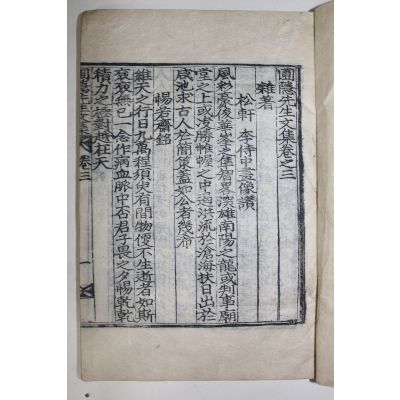 圃隱先生文集卷之三
雜著
松軒 李侍中畫像讚
風彩豪俊華峯之隼智畧深雄南陽之龍或判事廟
堂之上或決勝帷幄之中遏洪流於滄海扶日出於
咸池求古人於簡策盖如公者幾希
惕若齋銘
維天之行日九萬程須臾有間物便不生逝者如斯
袞袞無已一念作病血脈中否君子畏之夕惕乾乾
積力之極對越在天
圃隱先生文集 卷三 一